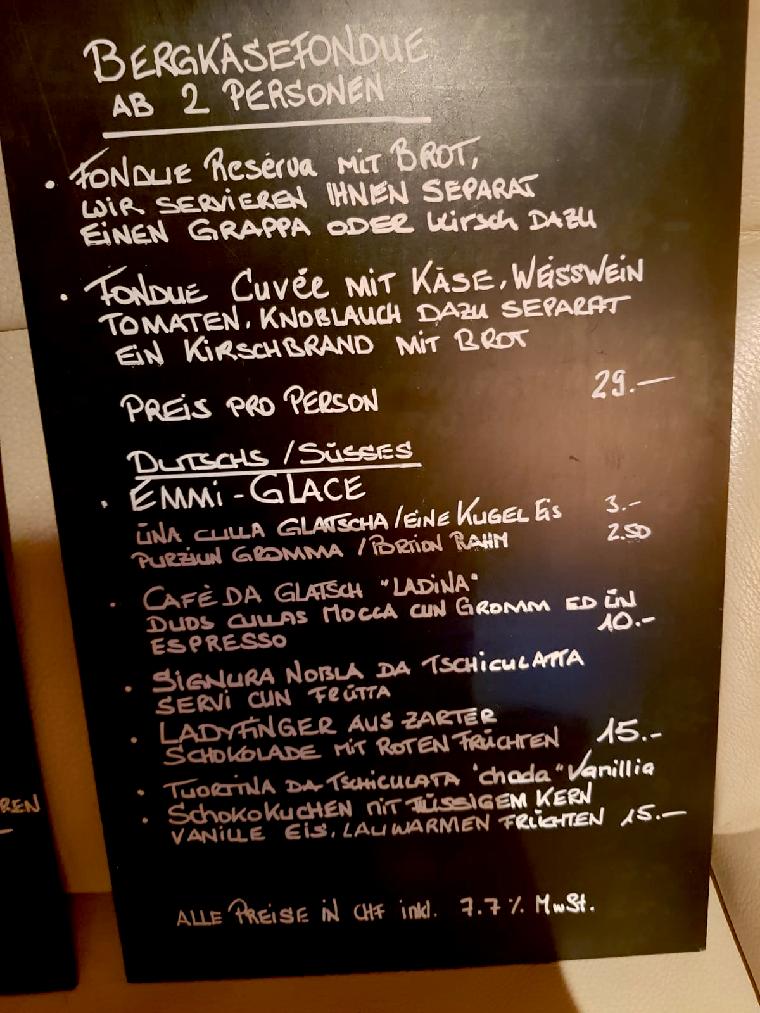 BERGKÄSEFONDUE
AB 2 PERSONEN
• FONDUE Resérva MIT BROT,
WIR SERVIEREN IHNEN SEPARAT
EINEN GRAPPA ODER Kirsch DAZU
• FONDUE Cuvée MIT KÄSE, WEISSWEIN
TOMATEN, KNOBLAUCH DAZU SEPARAT
EIN KIRSCHBRAND MIT BROT
PREIS PRO PERSON 29.—
DUTSCHS / SÜSSES
• EMMI - GLACE
ÜNA CULLA GLATSCHA / EINE KUGEL Eis 3.-
PURZIUN GROMMA / PORTION RAHM 2.50
• CAFÈ DA GLATSCH "LADINA"
DUOS CULLAS MOCCA CUN GROMM ED ÜN
ESPRESSO 10.-
• SIGNURA NOBLA DA TSCHICULATTA
SERVI CUN FRÜTTA
• LADYFINGER AUS ZARTER
SCHOKOLADE MIT ROTEN FRÜCHTEN 15.-
• TUORTINA DA TSCHICULATA "choda" Vanillia
• SCHOKOKUCHEN MIT FLÜSSIGEM KERN
VANILLE EIS, LAUWARMEN FRÜCHTEN 15.—
ALLE PREISE IN CHF inkl. 7.7 % MwSt.
REN